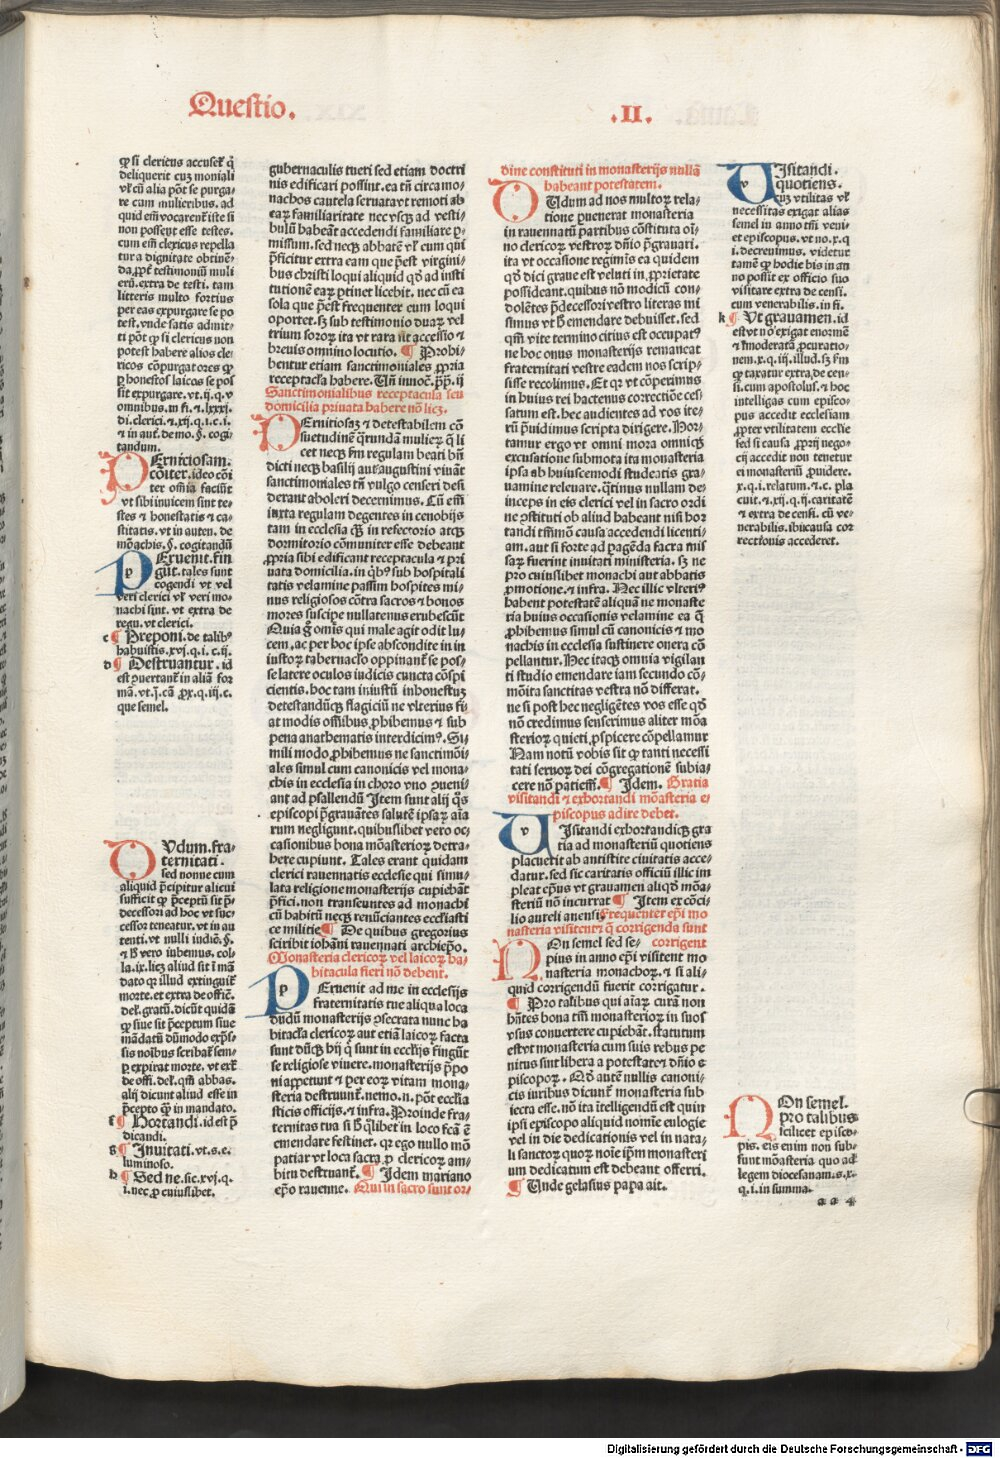 Questio. .II.
ꝙ si clericus accuset᷑ q̇
deliquerit cuꝫ moniali
vl̓ cū alia pōt se purga⸗
re cum mulieribus. ad
quid em̄ vocarent᷑ iste si
non possent esse testes.
cum em̄ clericus repella
tur a dignitate obtinē⸗
da, ꝓpt̓ testimoniū muli
erū. extra de testi. tam
litteris multo fortius
per eas expurgare se po
test, vnde satis admit⸗
ti pōt ꝙ si clericus non
potest habere alios cle⸗
ricos cōpurgatores ꝙ
ꝑ honestos laicos se pos
sit expurgare. vt .ij. q. v
omnibus. in fi. ⁊ .lxxxi.
di. clerici. ⁊ .xij. q. i. c. i.
⁊ in aut̓. de mo. §. cogi
tandum.
PErniciosam.
cōiter. ideo cōi
ter oīīia faciūt
vt sibi inuicem sint te⸗
stes ⁊ honestatis ⁊ ca⸗
stitatis. vt in auten. de
mōachis. §. cogitandū
PEruenit. fin
gūt. tales sunt
cogendi vt vel
veri clerici vl̓ veri mo⸗
nachi sint. vt extra de
regu. vt clerici.
c ¶ Preponi. de talibꝰ
habuistis. xvj. q. i. c. ij.
d ¶ Destruantur. id
est ꝑuertant᷑ in aliā for
mā. vt .j. cā ꝓx. q. iij. c.
que semel.
QUdum. fra⸗
ternitati.
sed nonne cum
aliquid p̄cipitur alicui
sufficit ꝙ p̄ceptū sit p̄⸗
decessori ad hoc vt suc⸗
cessor teneatur. vt in au
tenti. vt nulli iudiō. §.
⁊ ħ vero iubemus. col⸗
la. ix. licꝫ aliud sit ī mā
dato qꝛ illud extinguit᷑
morte. et extra de offic̄.
del̓. gratū. dicūt quidā
ꝙ siue sit p̄ceptum siue
mādatū dūmodo exp̄s⸗
sis noībus scribat᷑ sem⸗
ꝑ expirat morte. vt ext̓
de offi. del̓. qm̄ abbas.
alij dicunt aliud esse in
p̄cepto ꝙ in mandato.
f ¶ Hortandi. id est p̄
dicandi.
g ¶ Inuitati. vt .s. e.
luminoso.
h ¶ Sed ne. sic. xvj. q.
i. nec, ꝓ cuiuslibet.
gubernaculis tueri sed etiam doctri
nis edificari possint. ea tn̄ circa mo⸗
nachos cautela seruata vt remoti ab
eaꝝ familiaritate nec vsqꝫ ad vesti⸗
bulū habeāt accedendi familiare ꝑ⸗
missum. sed neqꝫ abbatē vl̓ eum qui
p̄ficitur extra eam que p̄est virgini⸗
bus christi loqui aliquid qd̓ ad insti
tutionē eaꝝ ꝑtinet licebit. nec cū ea
sola que p̄est frequenter eum loqui
oportet. sꝫ sub testimonio duaꝝ vel
trium soroꝝ ita vt rara sit accessio ⁊
breuis omnino locutio. ¶ Prohi⸗
bentur etiam sanctimoniales ꝓpria
receptacl̓a habere. Vn̄ innoc̄. pp̄. ij
Sanctimonialibus receptacula seu
domicilia priuata habere nō licꝫ.
PErnitiosaꝫ ⁊ detestabilem cō
suetudinē qͣrundā mulieꝝ q̄ li
cet neqꝫ fm regulam beati bn̄
dicti neqꝫ basilij aut augustini viuāt
sanctimoniales tn̄ vulgo censeri desi
derant aboleri decernimus. Cū em̄
iuxta regulam degentes in cenobijs
tam in ecclesia qꝫ in refectorio atqꝫ
dormitorio cōmuniter esse debeant
ꝓpria sibi edificant receptacula ⁊ pri
uata domicilia. in qͥbꝰ sub hospitali
tatis velamine passim hospites mi⸗
nus religiosos cōtra sacros ⁊ bonos
mores suscipe nullatenus erubescūt
Quia ḡ om̄is qui male agit odit lu⸗
cem, ac per hoc ipse abscondite in in
iustoꝝ tabernacl̓o oppinant᷑ se pos⸗
se latere oculos iudicis cuncta cōspi
cientis. hoc tam iniustū inhonestuꝫ
detestandūqꝫ flagiciū ne vlterius fi⸗
at modis oībus, ꝓhibemus ⁊ sub
pena anathematis interdicimꝰ. Si⸗
mili modo, ꝓhibemus ne sanctimōi⸗
ales simul cum canonicis vel mona⸗
chis in ecclesia in choro vno ꝯueni⸗
ant ad psallendū Item sunt alij q̄s
episcopi p̄grauātes salutē ipsaꝝ aīa
rum negligunt. quibuslibet vero oc⸗
casionibus bona mōasterioꝝ detra⸗
here cupiunt. Tales erant quidam
clerici rauennatis ecclesie qui simu⸗
lata religione monasterijs cupiebāt
p̄fici. non transeuntes ad monachi
cū habitū neqꝫ renūciantes eccl̓iasti
ce militie ¶ De quibus gregorius
scribit iohāni rauennati archiep̄o.
Monasteria clericoꝝ vel laicoꝝ ha⸗
bitacula fieri nō debent.
PEruenit ad me in ecclesijs
fraternitatis tue aliqua loca
dudū monasterijs ꝯsecrata nunc ha
bitacl̓a clericoꝝ aut etiā laicoꝝ facta
sunt dūqꝫ hij q̄ sunt in eccl̓ijs fingūt
se religiose viuere. monasterijs p̄po
ni appetunt ⁊ per eoꝝ vitam mona⸗
steria destruunt᷑. nemo. n. pōt eccl̓ia
sticis officijs. ⁊ infra. Proinde fra⸗
ternitas tua si ħ qͥlibet in loco fcā ē
emendare festinet. qꝛ ego nullo mō
patiar vt loca sacra, ꝓ clericoꝝ am⸗
bitu destruant᷑. ¶ Idem mariano
ep̄o rauenne. Qui in sacro sunt or⸗
dine constituti in monasterijs nullā
habeant potestatem.
QUdum ad nos multoꝝ rela⸗
tione ꝑuenerat monasteria
in rauennatū partibus cōstituta oī⸗
no clericoꝝ vestroꝝ dn̄io p̄grauari.
ita vt occasione regimīs ea quidem
qd̓ dici graue est veluti in, ꝓprietate
possideant. quibus nō modicū con⸗
dolētes p̄decessori vestro literas mi
simus vt ħ emendare debuisset. sed
qm̄ vite termino citius est occupatꝰ
ne hoc onus monasterijs remaneat
fraternitati vestre eadem nos scrip⸗
sisse recolimus. Et qꝛ vt cōperimus
in huius rei hactenus correctiōe ces⸗
satum est. hec audientes ad vos ite⸗
rū p̄uidimus scripta dirigere. Hor⸗
tamur ergo vt omni mora omniqꝫ
excusatione submota ita monasteria
ipsa ab huiuscemodi studeatis gra⸗
uamine releuare. qͣtinus nullam de⸗
inceps in eis clerici vel in sacro ordi
ne ꝯstituti ob aliud habeant nisi hor
tandi tm̄mō causa accedendi licenti⸗
am. aut si forte ad pagēda sacra mis
saꝝ fuerint inuitati ministeria. sꝫ ne
pro cuiuslibet monachi aut abbatis
ꝓmotione. ⁊ infra. Nec illic vlteriꝰ
habent potestatē aliquā ne monaste
ria huius occasiōis velamine ea q̄
ꝓhibemus simul cū canonicis ⁊ mo
nachis in ecclesia sustinere onera cō
pellantur. Nec itaqꝫ omnia vigilan
ti studio emendare iam secundo cō⸗
mōita sanctitas vestra nō differat.
ne si post hec negligētes vos esse qd̓
nō credimus senserimus aliter mōa
sterioꝝ quieti, ꝓspicere cōpellamur
Nam notū vobis sit ꝙ tanti necessi
tati seruoꝝ dei cōgregationē subia⸗
cere nō patiem̄. ¶ Idem. Gratia
visitandi ⁊ exhortandi mōasteria e⸗
piscopus adire debet.
UIsitandi exhortandiqꝫ gra
tia ad monasteriū quotiens
placuerit ab antistite ciuitatis acce⸗
datur. sed sic caritatis officiū illic im
pleat ep̄us vt grauamen aliqd̓ mōa⸗
steriū nō incurrat ¶ Item ex cōci⸗
lio aureli anensi. Frequenter ep̄i mo
nasteria visitent ⁊ q̄ corrigenda sunt
corrigent
NOn semel sed se⸗
pius in anno ep̄i visitent mo
nasteria monachoꝝ. ⁊ si ali⸗
quid corrigendū fuerit corrigatur.
¶ Pro talibus qui aīaꝝ curā non
hn̄tes bona tm̄ monasterioꝝ in suos
vsus conuertere cupiebāt. statutum
est vt monasteria cum suis rebus pe
nitus sint libera a potestate ⁊ dn̄io e
piscopoꝝ. Qd̓ autē nullis canoni⸗
cis iuribus dicunt᷑ monasteria sub
iecta esse. nō ita ītelligendū est quin
ipsi episcopo aliquid nomīe eulogie
vel in die dedicationis vel in nata⸗
li sanctoꝝ quoꝝ noīe ip̄m monasteri
um dedicatum est debeant offerri.
¶ Unde gelasius papa ait.
UIsitandi.
quotiens.
cuꝫ vtilitas vl̓
necessitas exigat alias
semel in anno tm̄ veni⸗
et episcopus. vt no. x. q
i. decreuimus. videtur
tamē ꝙ hodie bis in an
no possit ex officio suo
visitare extra de censi.
cum venerabilis. in fi.
k ¶ Vt grauamen. id
est vt nō exigat enormē
⁊ īmoderatā, ꝓcuratio⸗
nem. x. q. iij. illud. sꝫ fm
ꝙ taxatur extra, de cen⸗
si. cum apostolus. ⁊ hoc
intelligas cum episco⸗
pus accedit ecclesiam
ꝓpter vtilitatem ecclie
sed si causa, ꝓprij nego⸗
cij accedit non tenetur
ei monasteriū, ꝓuidere.
x. q. i. relatum. ⁊ c. pla
cuit. ⁊ .xij. q. ij. caritatē
⁊ extra de censi. cū ve⸗
nerabilis. ibi causa cor
rectionis accederet.
NOn semel.
pro talibus
scilicet episco⸗
pis. eis enim non sub⸗
sunt mōasteria quo ad
legem diocesanam. s. x.
q. i. in summa.
a a 4
Digitalisierung gefördert durch die Deutsche Forschungsgemeinschaft - DFG